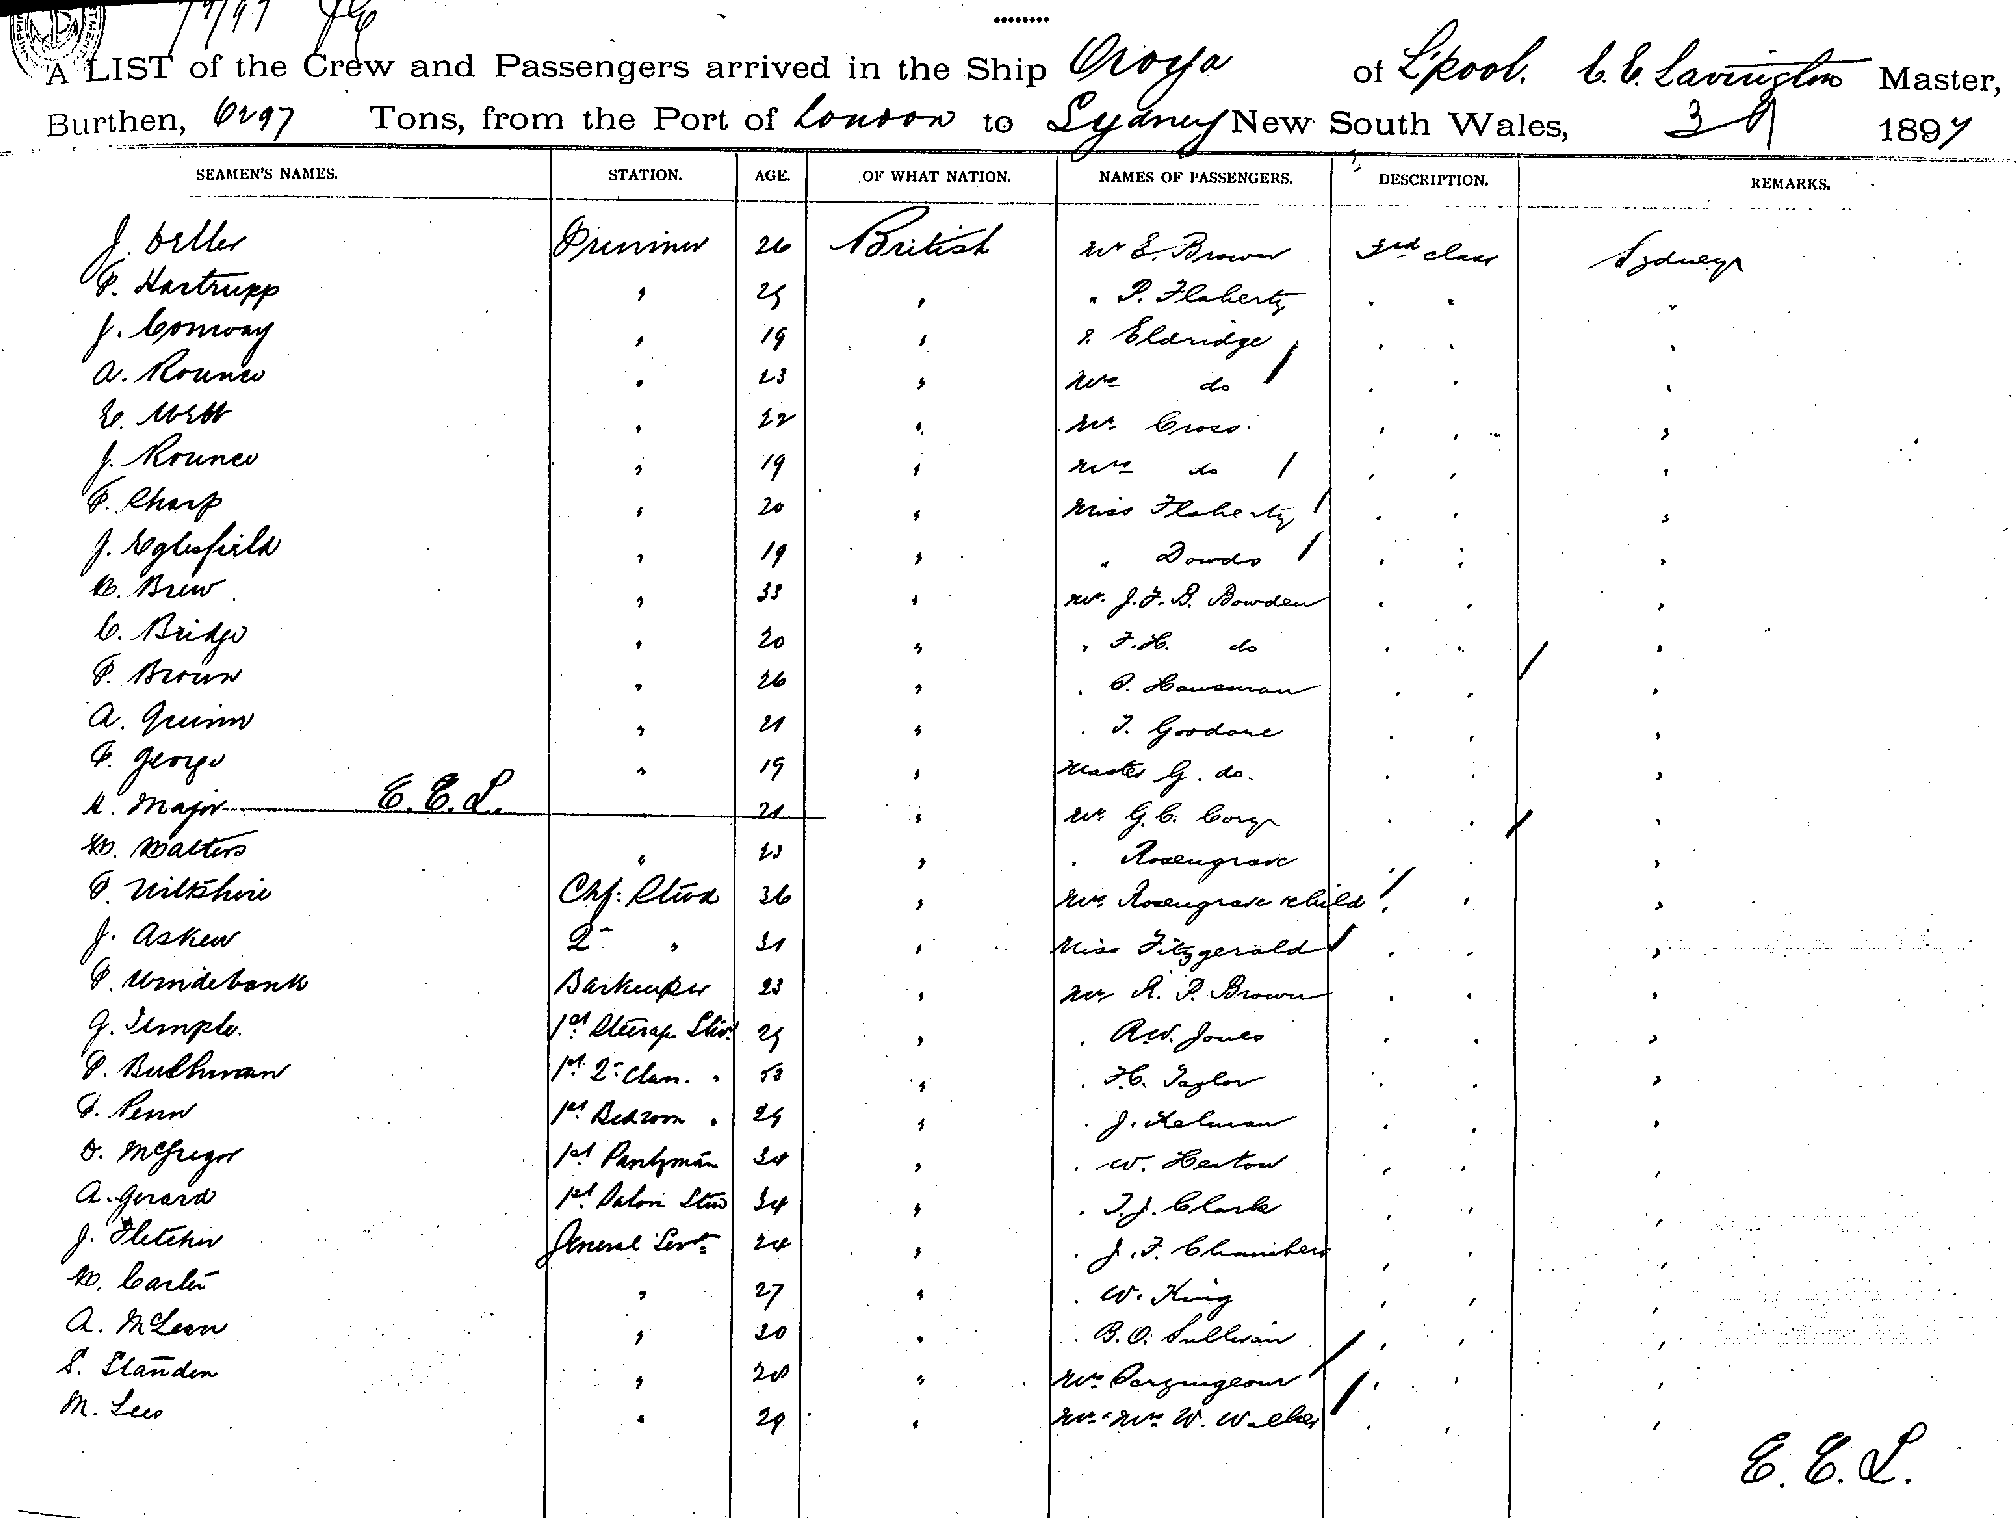 A LIST of the Crew and Passengers arrived in the Ship Oroya of L'pool. C. E. Lavington Master,
Burthen, 6297 Tons, from the Port of London to Sydney New South Wales, 1897
SEAMEN'S NAMES. STATION. AGE. OF WHAT NATION. NAMES OF PASSENGERS. DESCRIPTION. REMARKS.
J. 26 British Mr E. Brown 3rd class Sydney
F. Hartrupp " 25 " " P. Flaherty " " "
J. Conway " 19 " " Eldridge " " "
A. Rounce " 23 " Mrs do " " "
E. Webb " 22 " Mr. Cross. " " "
J. Rounce " 19 " Mrs do " " "
F. Sharp " 20 " Miss Flaherty " " "
J. Eglesfield " 19 " " Dowds " " "
Brew " 33 " Mr. J. F. B. Bowden " " "
C. Bridge " 20 " " F. H. do " " "
P. Brown " 26 " " Houseman " " "
A. Quinn " 21 " " T. " " "
F. George " 19 " Master G. do. " " "
Major E. E. L. 21 " Mr. G. C. " " "
W. Walters " 23 " " Rosengrave " " "
P. Wiltshire Chf: Stwd 36 " Mrs Rosengrave & child " " "
J. Askew 2" " 31 " Miss Fitzgerald " " "
P. Windebank Barkeeper 23 " Mr R. P. Brown " " "
G. Temple. 1st Steerage Stwd 25 " " A. W. Jones " " "
1st 2" Class. " " " Taylor " " "
Penn 1st Bedroom " 29 " " J. Kelman " " "
D. McGregor 1st Pantryman " " W. " " "
A. Gerard 1st Saloon Stwd 34 " " T. J. Clark " " "
J. Fletcher General Servt. 24 " " J. F. Chambers " " "
W. Carter " 27 " " W. King " " "
A. McLean " 20 " " B. O. Sullivan " " "
S. Standen " 28 " Mrs " " "
M. Lees " 29 " Mr. & Mrs W. Walker " " "
E. E. L.